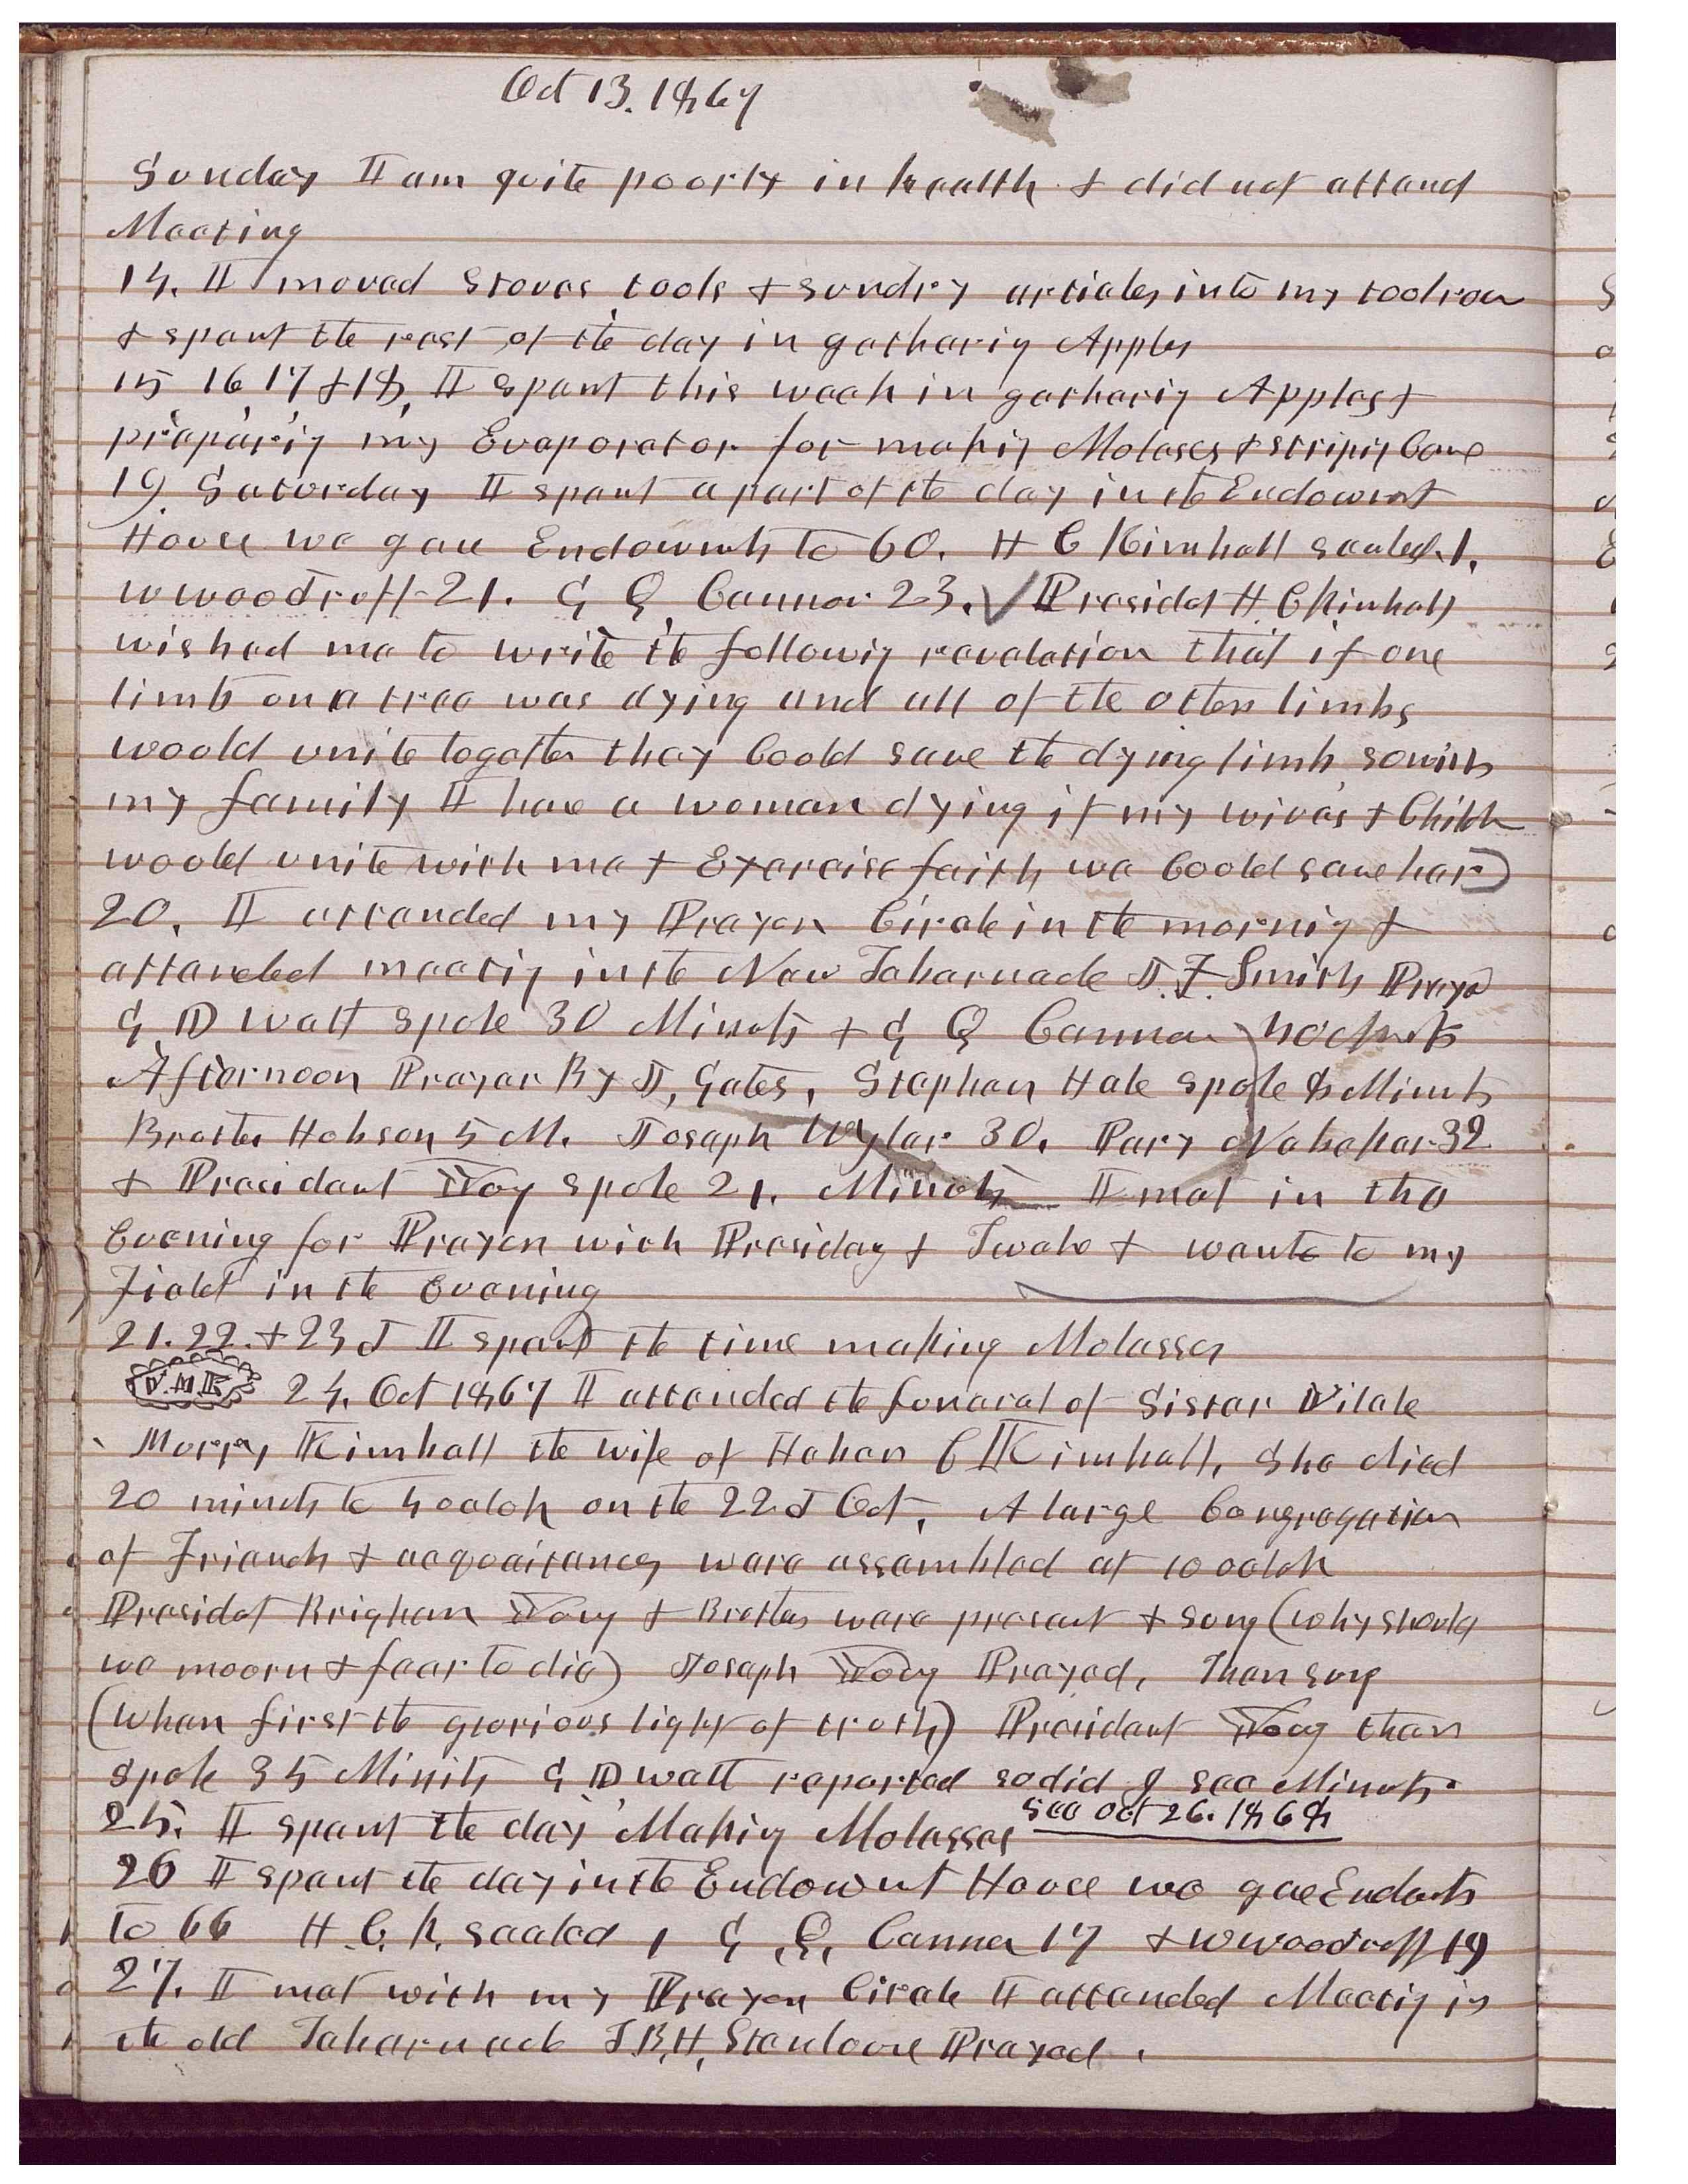 Oct 13. 1867
Sunday I am quite poorly in health & did not attend
Meeting
14. I moved stoves, tools & sundry articles into my toolroom
& spent the rest of the day in gatherig Apples
15 16 17 & 18, I spent this week in gatherig Apples &
preparig my Evaporator for makig Molases & stripig Cane
19. Saturday I spent a part of the day in the Endowmt
House we gave Endowmts to 60. H C Kimball sealed 1.
W Woodruff 21. G Q Cannon 23. ✓ Presidet H. C Kimball
wished me to write the followig revelation that if one
limb on a tree was dying and all of the other limbs
would unite together they Could save the dying limb so with
my family I have a woman dying if my wives & Childn
would unite with me & Exercise faith we Could save her)
20. I attended my Prayer Circle in the mornig &
attended meetig in the New Tabernacle J. F. Smith Prayed
G D Watt spoke 30 Minuts & G Q Cannon 40 Minuts
Afternoon Prayer By J, Gates, Stephen Hale spoke 8 Minuts
Brother Hobson 5 M. Joseph Wyler 30. Pary Nebeker 32
& President Young spoke 21. Minuts I met in the
Evening for Prayer with Presidency & Twelve & wente to my
Field in the Evening
21. 22. & 23d I spent the time making Molasses
V.M K 24. Oct 1867 I attended the funeral of Sister Vilate
Murry Kimball the wife of Heber C Kimball, She died
20 minuts to 4 oclok on the 22d Oct, A large Congregation
of Friends & acquaitances were assembled at 10 oclok
Presidet Brigham Young & Brothers were present & sung (why should
we mourn & fear to die) Joseph Young Prayed, Then sung
(When first the glorious light of truth) President Young then
spoke 35 Minuts G D Watt reported so did I see Minuts.
25. I spent the day Makig Molasses see oct 26. 1868
26 I spent the day in the Endowmt House we gave Endowmts
to 66 H. C. K. sealed 1 G. Q, Cannon 17 & W Woodruff 19
27. I met with my Prayer Circle I attended Meetig in
the old Tabernacle T. B, H, Stenhouse Prayed.